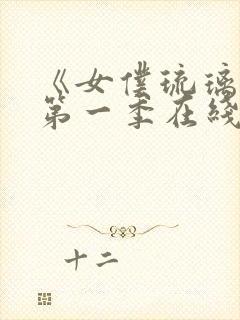 《女僕琉璃
第一季在綫
十二